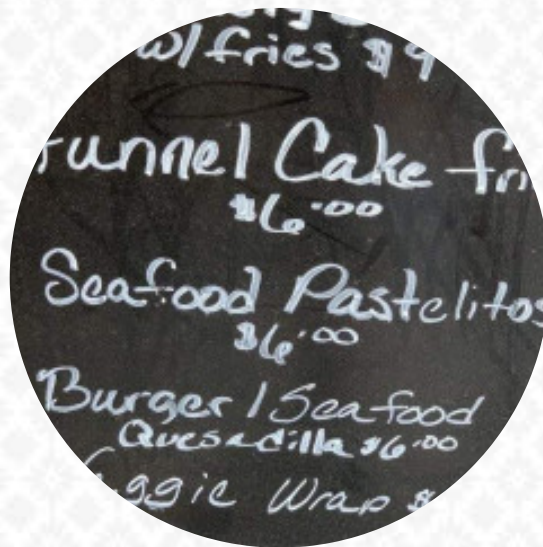 w/ fries $9
unnel Cake fri
$6.00
Seafood Pastelitos
$6.00
Burger / Seafood
Quesadilla $6.00
eggie Wrap $